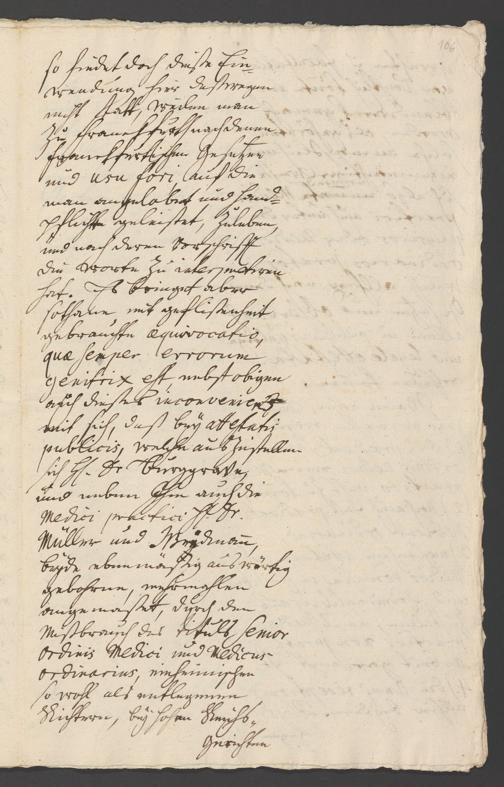 106
so findet doch diese Ein-
wendung hier deßwegen
nicht statt, weilen man
zu Franckfurth nach denen
Franckfurtischen Gesetzen
und usu fori, auf die
man angelobet und Hand-
pflichte geleistet, zu leben,
und nach deren Vorschrifft
die Worte zu interpretiren
hat. Es bringet aber
sothane mit geflißenheit
gebrauchte æquivocatio,
quæ semper errorum
genitrix est, nebst obigen
auch dieses inconvenienz
mit sich, daß bey attestatis
publicis, welche auszustellen
sich H. Dr. Burggrave,
und neben Ihm auch die
Medici practici H. Dr.
Müller und
beyde ebenmäßig auswärtig
gebohrne, mehrmahlen
angemaßet, durch den
Mißbrauch des tituls Senior
Ordinis Medici und Medicus
ordinarius, einheimischen
so wohl als entlegenen
Richtern, bey hohen Reichs-
Gerichten